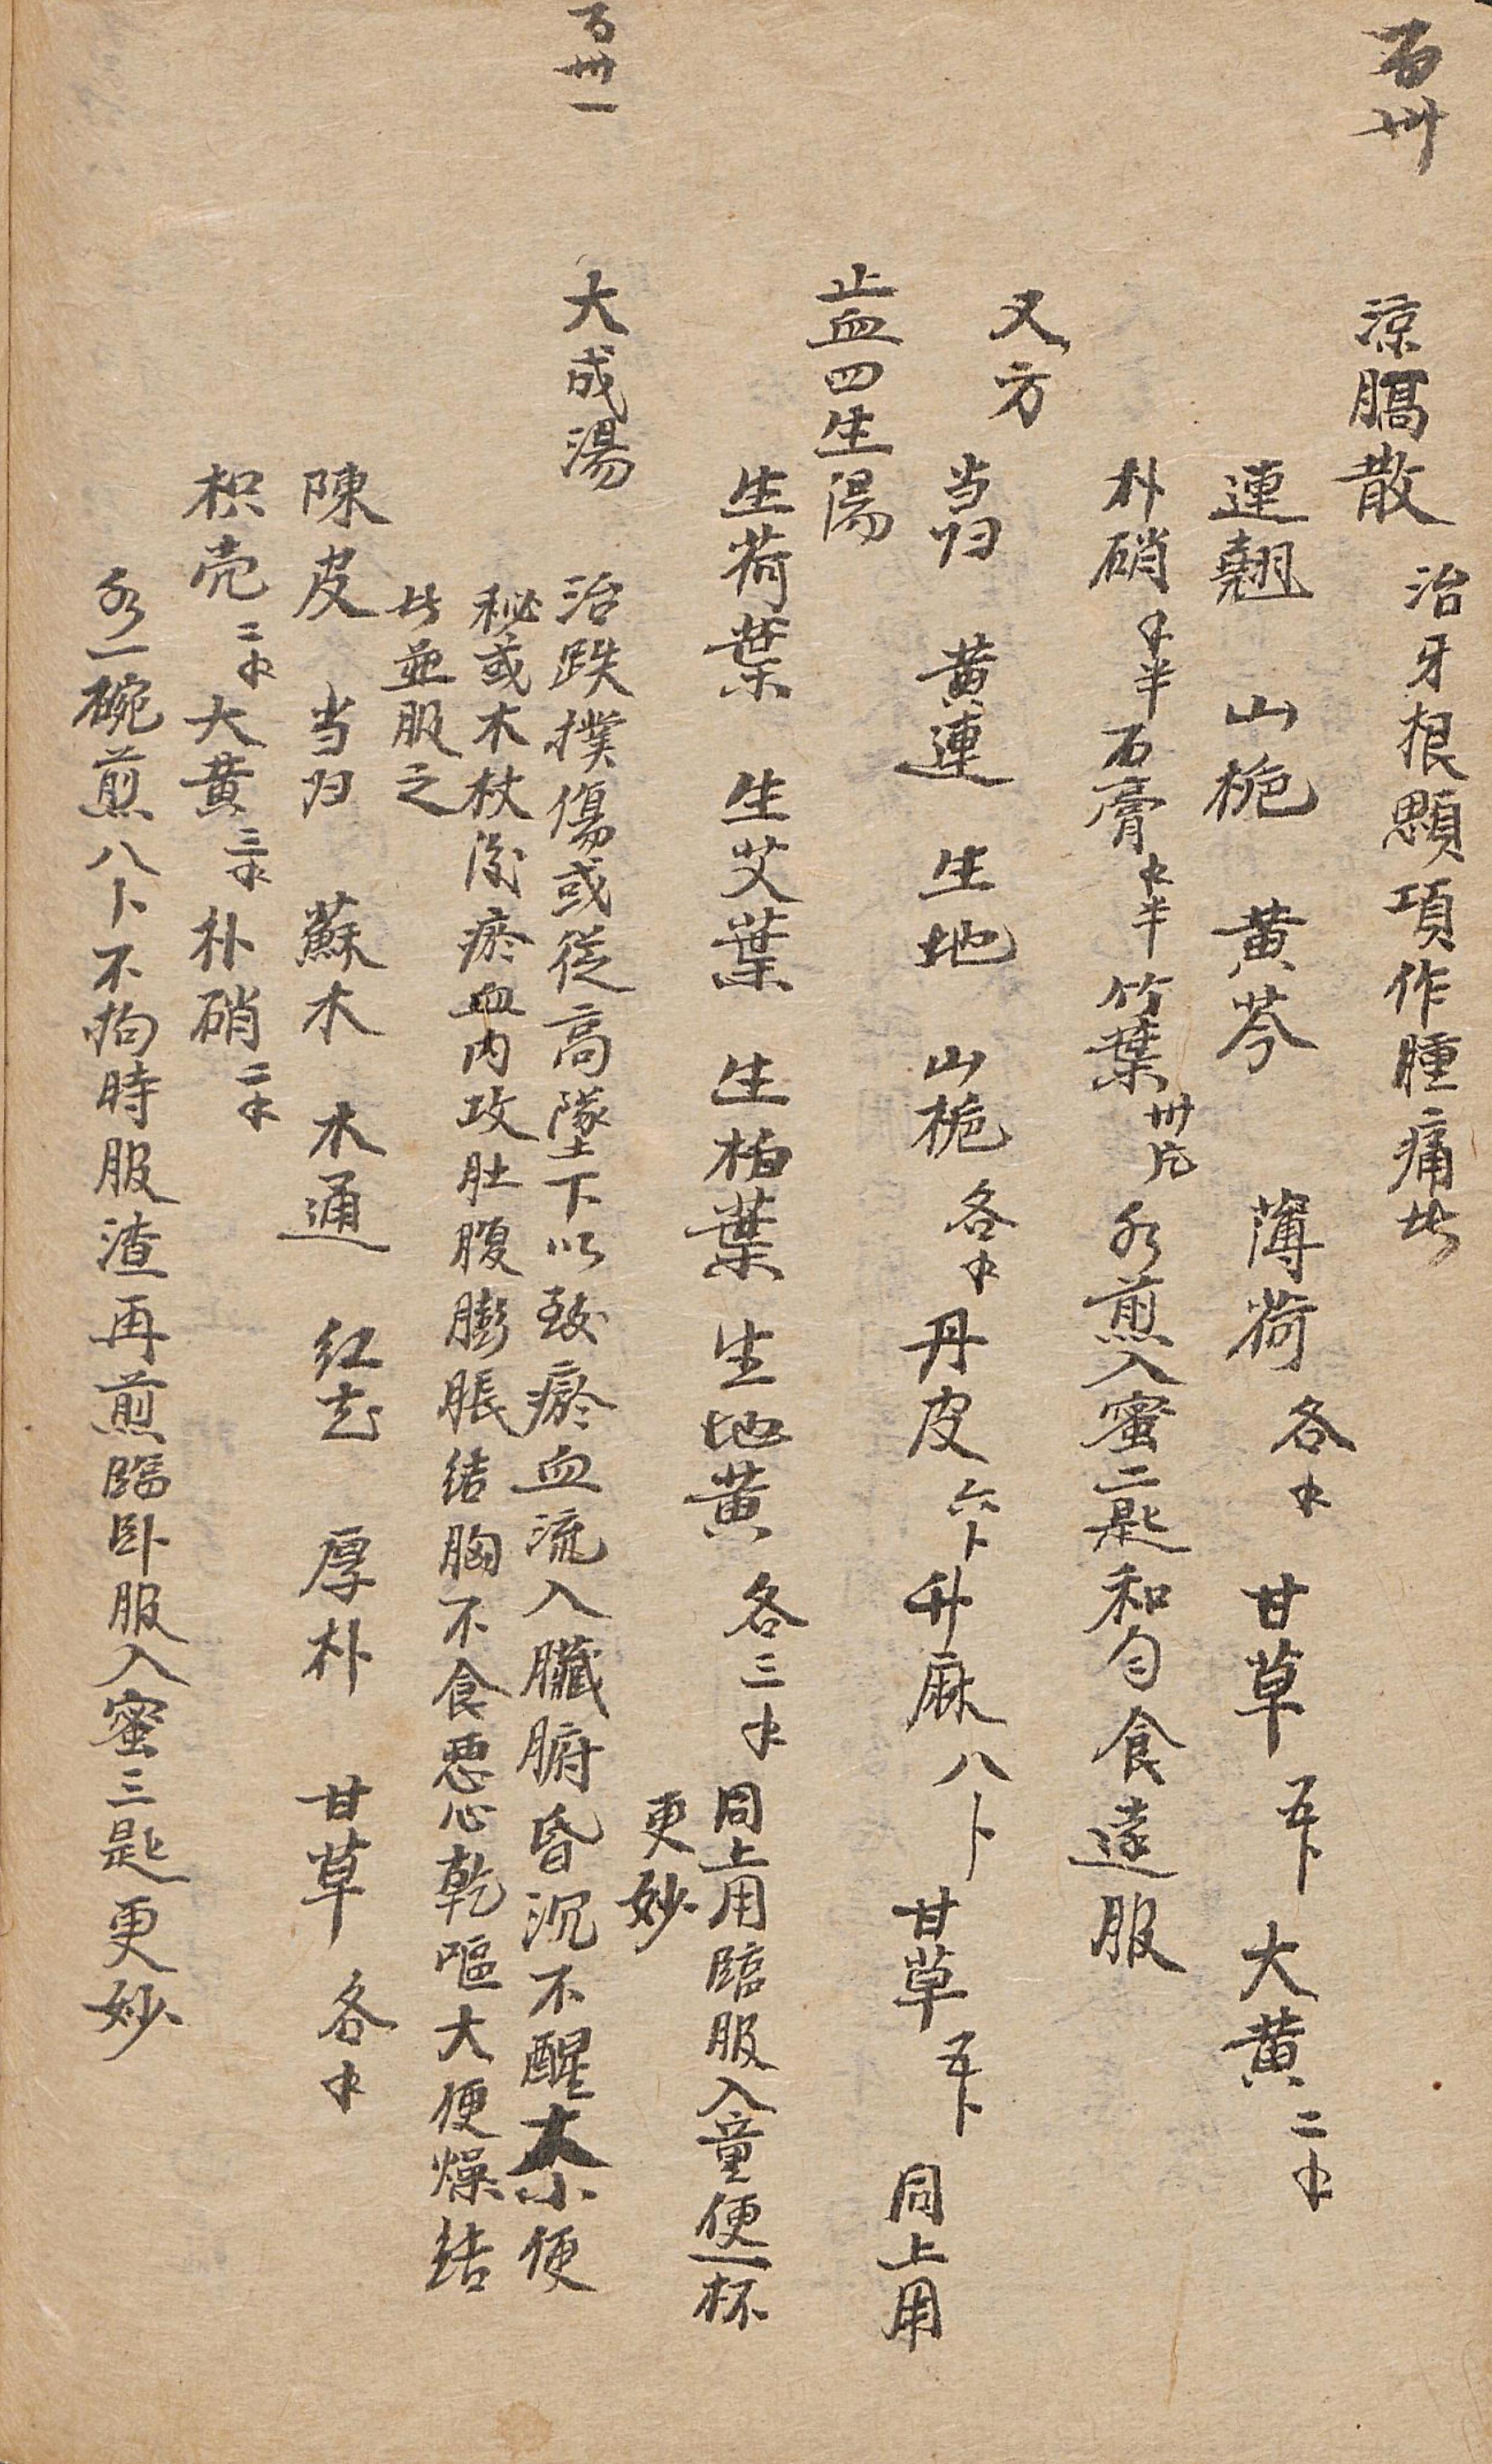 百卅
涼膈散 治牙根顋項作腫痛此
連翹 山梔 黄芩 薄荷 各錢 甘草 五卜 大黄 二錢
朴硝 錢半 石膏 錢半 竹葉 卅片 水煎入蜜二匙和匀食遠服
又方
当归 黄連 生地 山梔 各錢 丹皮 六卜 升麻 八卜 甘草 五卜 同上用
止血四生湯
生荷葉 生艾葉 生柏葉 生地黄 各三錢 同上用臨服入童便一杯
更妙
百卅一
大成湯 治跌撲傷或從高墜下以致瘀血流入臟腑昏沉不醒大小便
秘或木杖後瘀血内攻肚腹膨脹结胸不食悪心乾嘔大便燥结
此並服之
陳皮 当归 蘇木 木通 红花 厚朴 甘草 各錢
枳壳 二錢 大黄 三錢 朴硝 二錢
水一碗煎八卜不拘時服渣再煎臨卧服入蜜三匙更妙